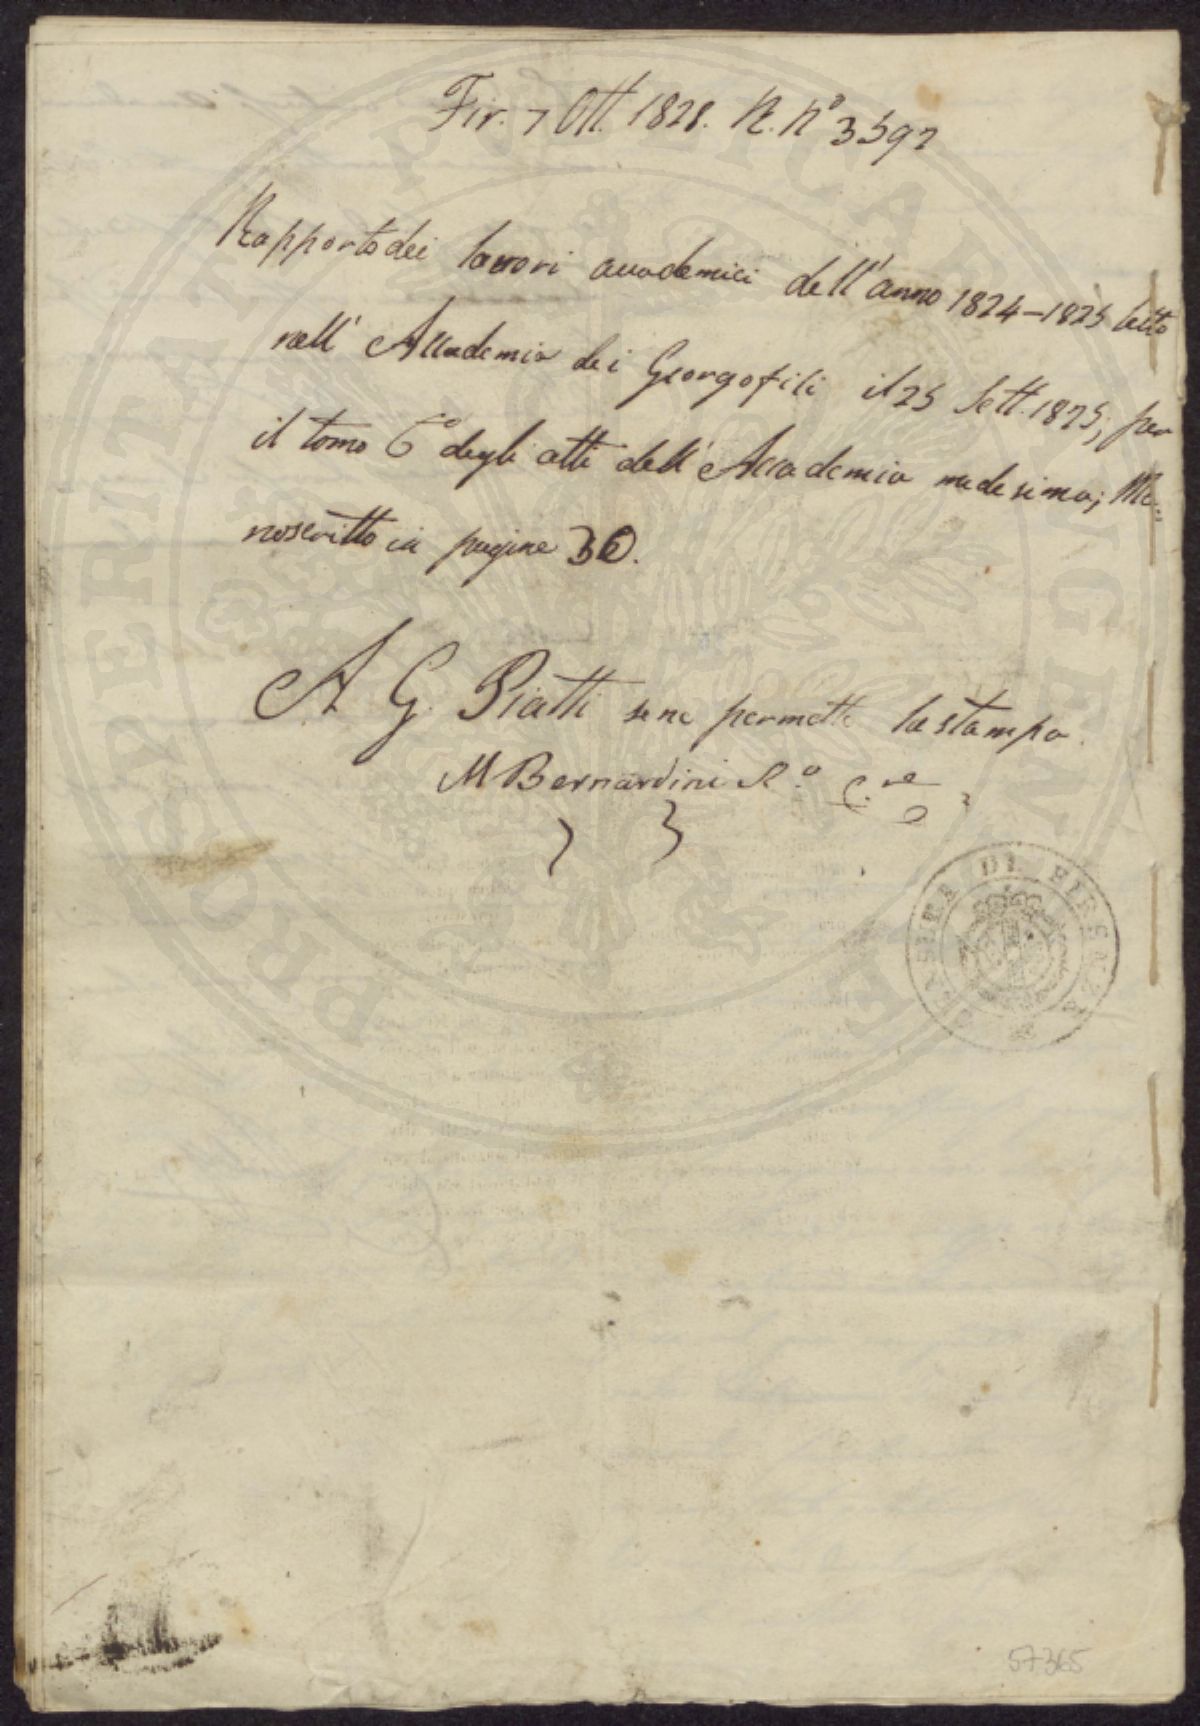 Fir. 7 Ott. 1828. R. N.º 3592
Rapporto dei lavori accademici dell'anno 1824-1825 letto
nell' Accademia dei Georgofili il 25 Sett. 1825; per
il tomo 6º degli atti dell'Accademia medesima; Ma-
noscritto in pagine 36.
A G. Piatti se ne permette la stampa.
M Bernardini R.º C.re
DI FIRENZE
PROSPERITATI PUBLICAE AUGENDAE
57365